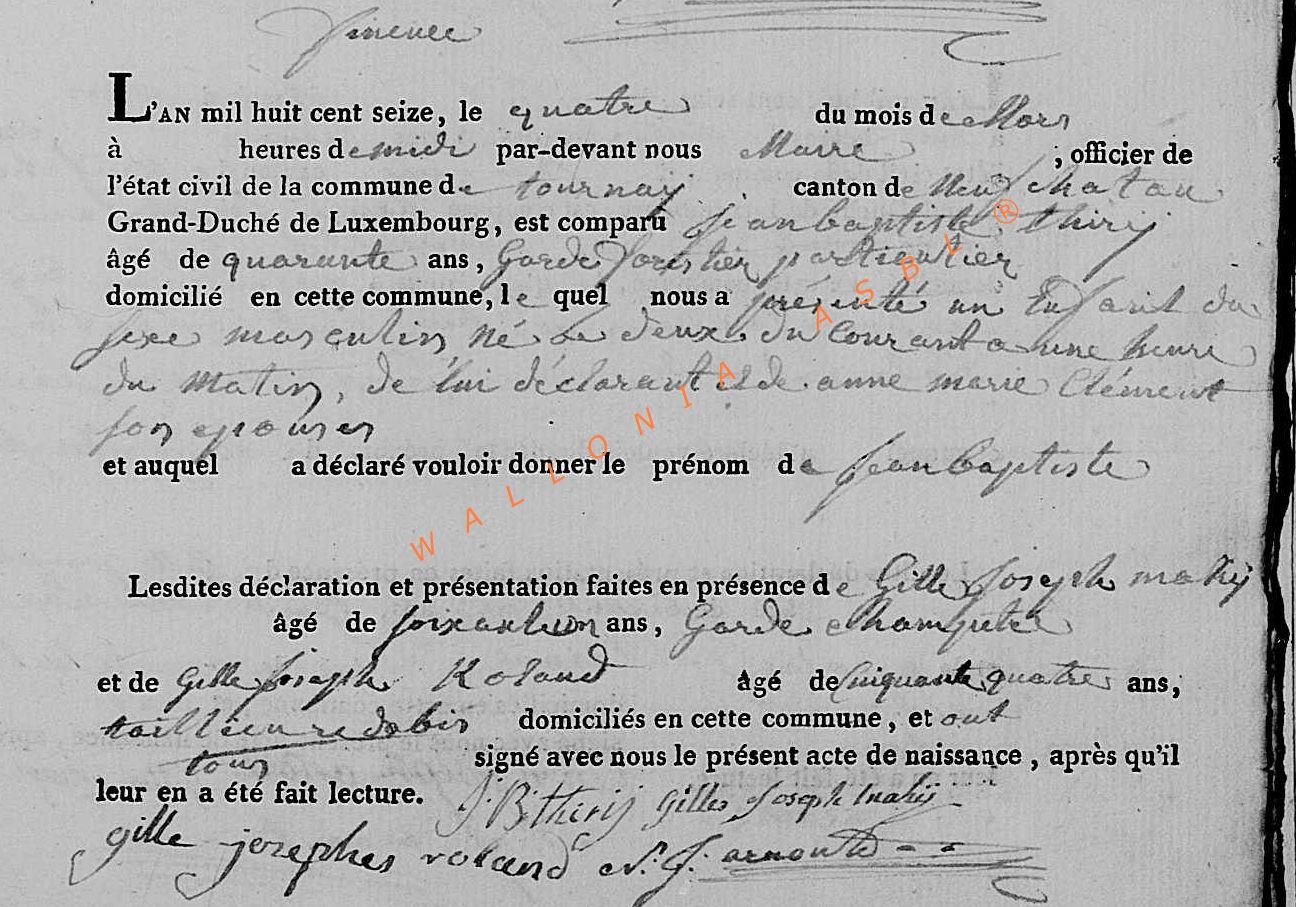 L'AN mil huit cent seize, le quatre du mois de Mars
à heures de midi par-devant nous Maire, officier de
l'état civil de la commune de tournay canton de Neufchatau
Grand-Duché de Luxembourg, est comparu jean baptiste thirÿ
âgé de quarante ans, Garde forestier particulier
domicilié en cette commune, le quel nous a présenté un Enfant du
sexe masculin né Le deux du Courant a une heure
du Matin, de lui déclarant et de anne marie Clément
son epouses
et auquel a déclaré vouloir donner le prénom de jean baptiste
Lesdites déclaration et présentation faites en présence de Gille Joseph mahÿ
âgé de ans, Garde Champetre
et de Gille Joseph Roland âgé de Cinquante quatre ans,
tailleure dabis domiciliés en cette commune, et ont
tous signé avec nous le présent acte de naissance, après qu'il
leur en a été fait lecture. J. B. thirÿ Gilles Joseph mahÿ
gille jozephes roland N. J. arnould
WALLONIA ASBL ®